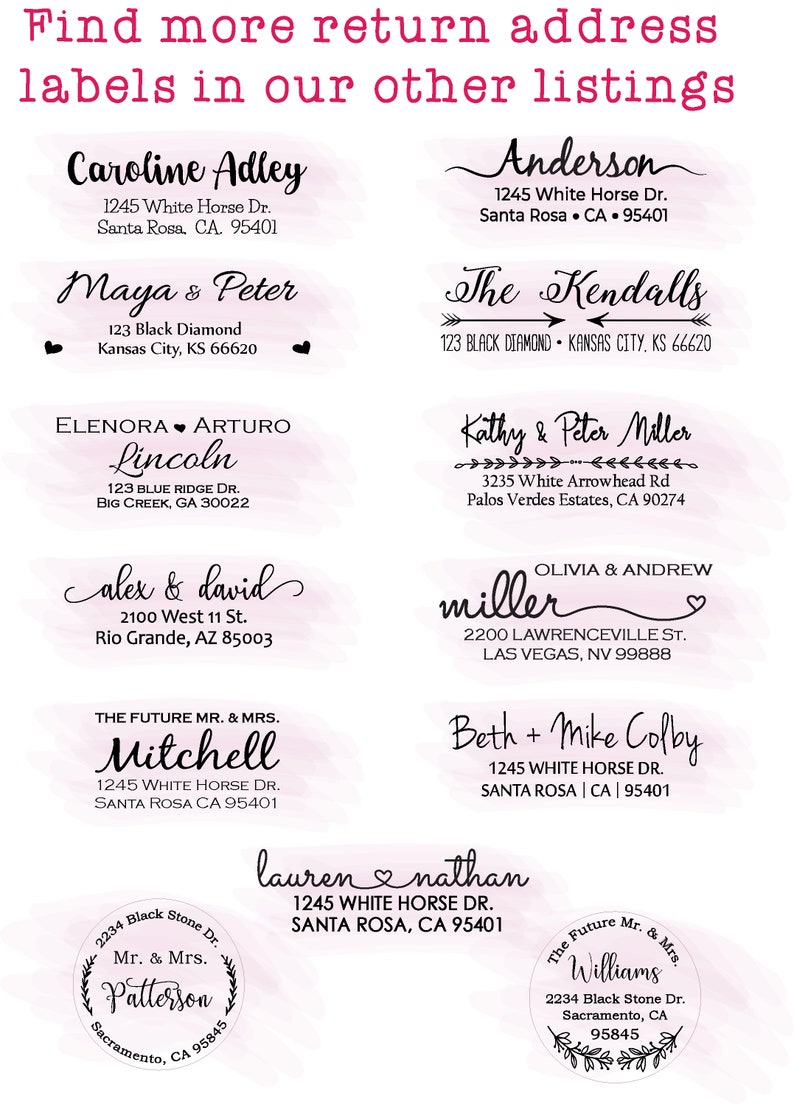 Find more return address
labels in our other listings
Caroline Adley
1245 White Horse Dr.
Santa Rosa, CA, 95401
Anderson
1245 White Horse Dr.
Santa Rosa • CA • 95401
Maya & Peter
123 Black Diamond
Kansas City, KS 66620
The Kendalls
123 BLACK DIAMOND • KANSAS CITY, KS 66620
ELENORA ♥ ARTURO
Lincoln
123 BLUE RIDGE DR.
BIG CREEK, GA 30022
Kathy & Peter Miller
3235 White Arrowhead Rd
Palos Verdes Estates, CA 90274
alex & david
2100 West 11 St.
Rio Grande, AZ 85003
OLIVIA & ANDREW
miller
2200 LAWRENCEVILLE ST.
LAS VEGAS, NV 99888
THE FUTURE MR. & MRS.
Mitchell
1245 WHITE HORSE DR.
SANTA ROSA CA 95401
Beth + Mike Colby
1245 WHITE HORSE DR.
SANTA ROSA | CA | 95401
lauren ♡ nathan
1245 WHITE HORSE DR.
SANTA ROSA, CA 95401
2234 Black Stone Dr.
Mr. & Mrs.
Patterson
Sacramento, CA 95845
The Future Mr. & Mrs.
Williams
2234 Black Stone Dr.
Sacramento, CA
95845